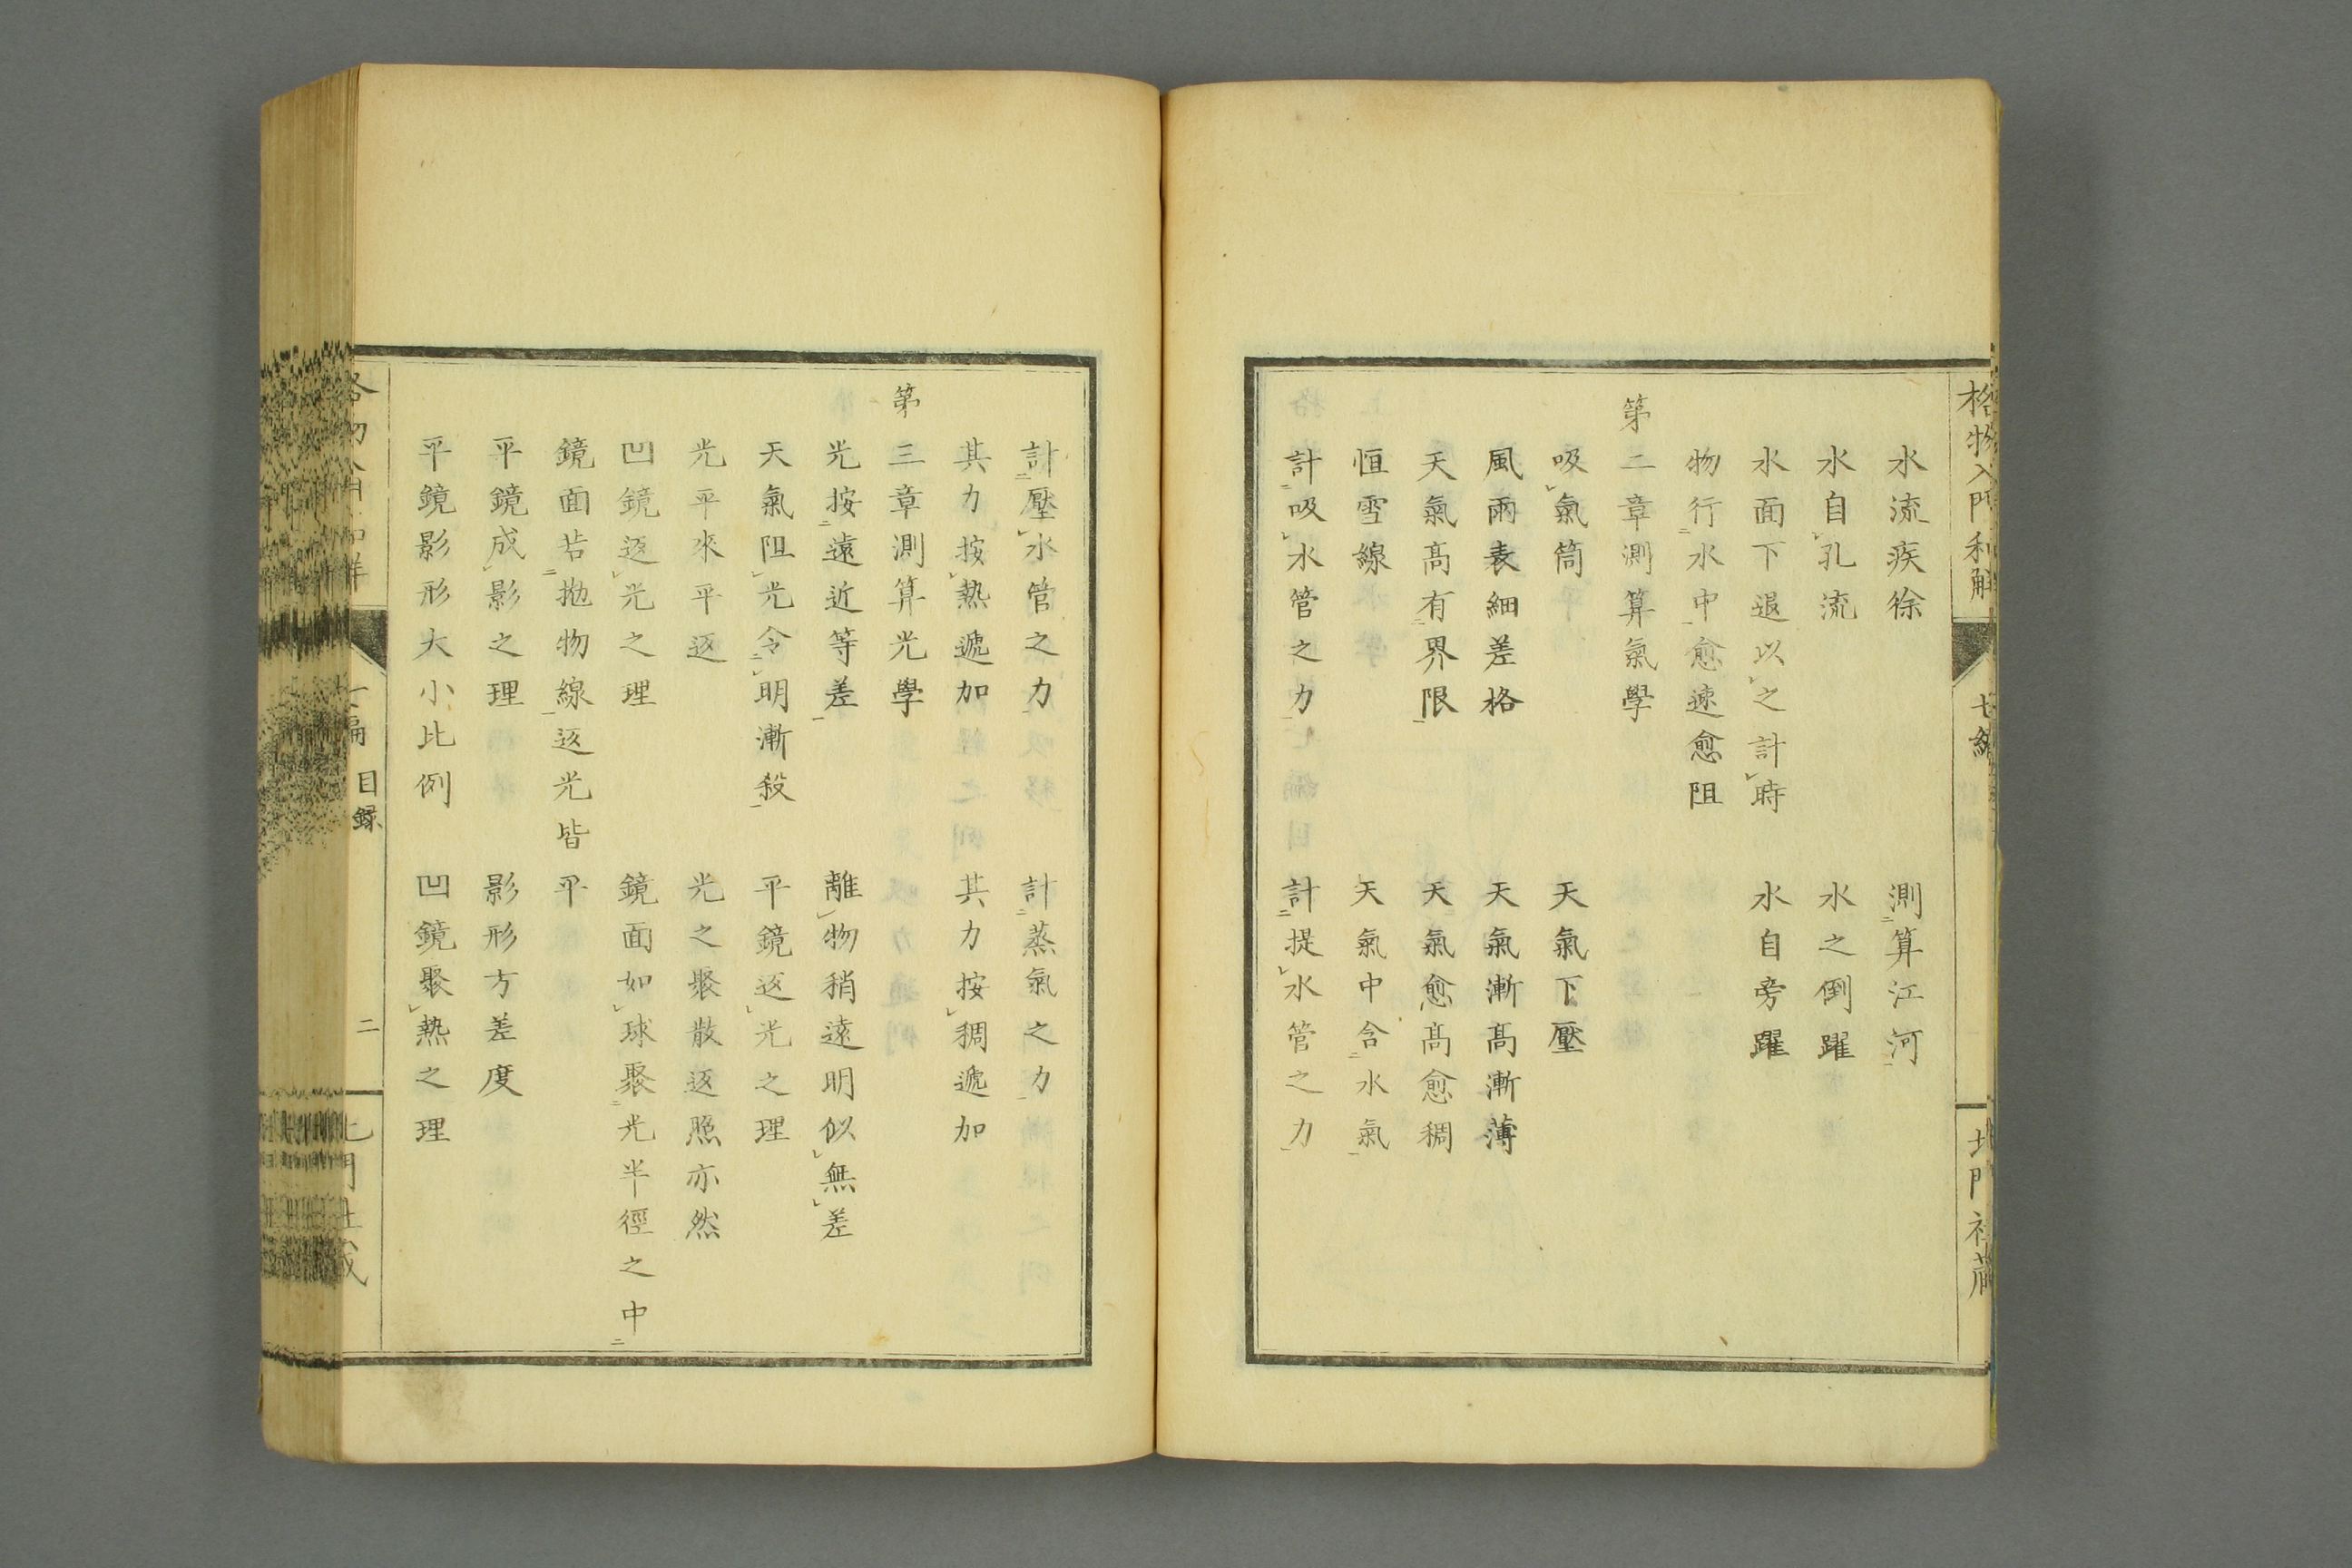 格物入門和解
七編
北門社蔵
水流疾徐 測算江河
水自孔流 水之倒躍
水面下退以之計時 水自旁躍
物行水中愈速愈阻
第二章測算氣學
吸氣筒 天氣下壓
風雨表細差格 天氣漸高漸薄
天氣高有界限 天氣愈高愈稠
恒雪線 天氣中含水氣
計吸水管之力 計提水管之力
計壓水管之力 計蒸氣之力
其力按熱遞加 其力按稠遞加
第三章測算光學
光按遠近等差 離物稍遠明似無差
天氣阻光令明漸殺 平鏡返光之理
光平來平返 光之聚散返照亦然
凹鏡返光之理 鏡面如球聚光半徑之中
鏡面若拋物線返光皆平
平鏡成影之理 影形方差度
平鏡影形大小比例 凹鏡聚熱之理
目録
二